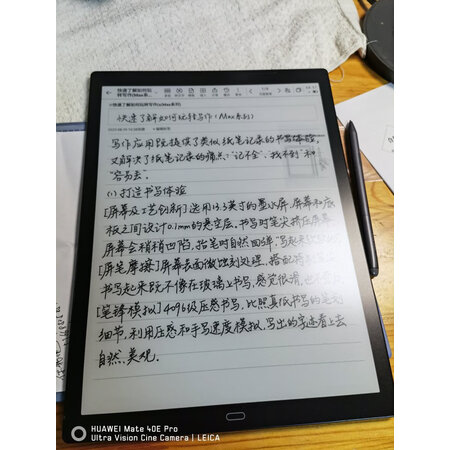 快速了解如何玩
转写作(Max系...
快速了解如何玩转写作(Max系列)
快速了解如何玩转写作(Max系列)
写作应用既提供了类似纸笔记录的书写体验,
又解决了纸笔记录的痛点:“记不全、找不到”和
“容易丢”。
(1)打造书写体验
[屏幕及工艺创新]选用13.3英寸的墨水屏,屏幕和底
板之间设计0.1mm的悬空层。书写时笔尖挤压屏幕
屏幕会稍稍凹陷,抬笔时自然回弹,写起来
[屏笔摩擦]屏幕表面微蚀刻处理,搭配
书写起来既不像在玻璃上书写,感觉很滑,也不
[笔锋模拟]4096级压感书写,比照真纸书写的笔
细节,利用压感和手写速度模拟,写出的字迹看上去
自然、美观。
HUAWEI Mate 40E Pro
Ultra Vision Cine Camera | LEICA